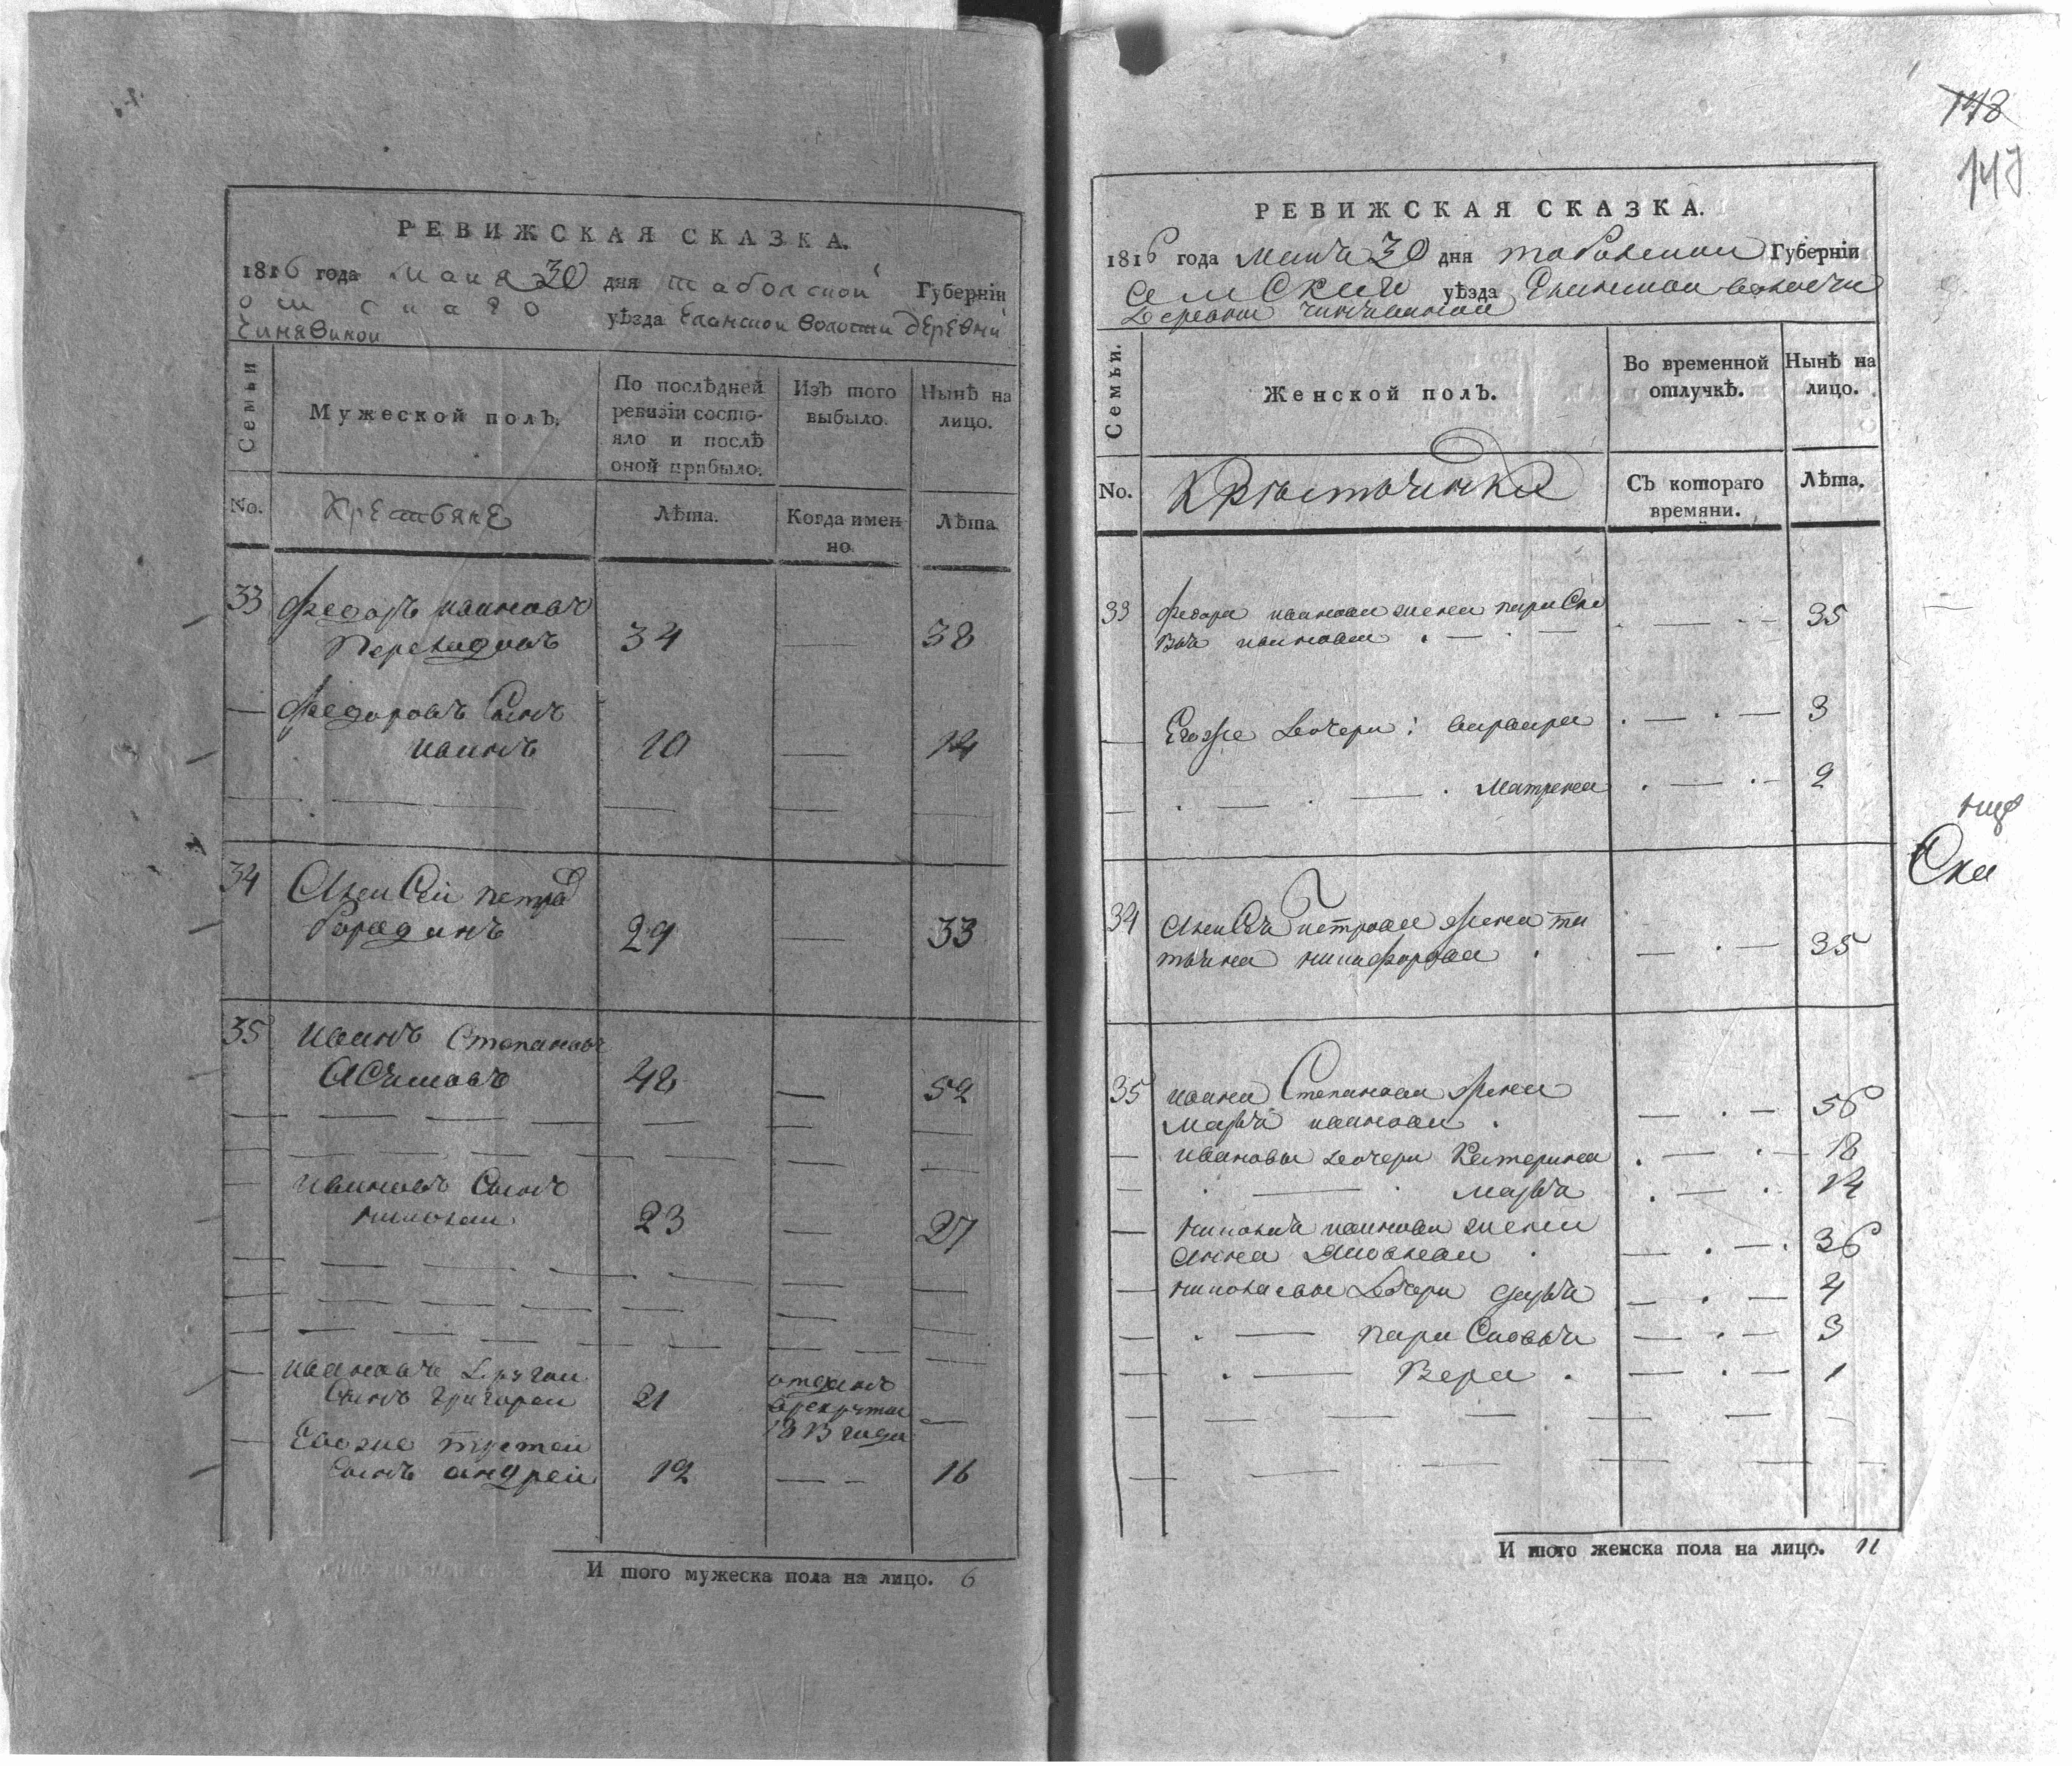 РЕВИЖСКАЯ СКАЗКА.
1816 года Маия 30 дня таболской Губерніи
омскаго уѣзда Еланской волости деревни
Чинявиной
Семьи
Мужеской полъ.
По послѣдней ревизіи состояло и послѣ оной прибыло.
Изъ того выбыло.
Нынѣ на лицо.
No.
Крестьяне
Лѣта.
Когда именно.
Лѣта
33 Федоръ ивановъ
34 — 38
— Федоровъ Сынъ
иванъ 10 — 14
34 Алексѣй петров
Бородинъ 29 — 33
35 иванъ Степановъ
48 — 52
ивановъ Сынъ
николаи 23 — 27
— ивановъ другои
Сынъ григореи 21
отданъ
врекруты
1813 года —
— Евоже третеи
Сынъ андреи 12 — — 16
И того мужеска пола на лицо. 6
148
147
РЕВИЖСКАЯ СКАЗКА.
1816 года Маия 30 дня тобольской Губерніи
уѣзда Еланской волости
Деревни
Семьи.
Женской полъ.
Во временной отлучкѣ.
Нынѣ на лицо.
No.
Крестьянки
Съ котораго времяни.
Лѣта.
33 Федора иванова жена параске
вья иванова . — . — . — . — 35
— Егоже дочери: . — . — 3
— . — . — . Матрена . — . — 2
34 Алексея Петрова жена та
тьяна никифорова . — . — 35
35 ивана Степанова жена
Марья иванова . — . — 56
— ивановы дочери Катерина . — . — 18
— . — . Марья . — . 14
— николая иванова жена
анна Яковлева . — . — . 36
— николаевы дочери дарья — . — 4
— . — парасковья — . — 3
— . — Вера . — . — 1
И того женска пола на лицо. 11